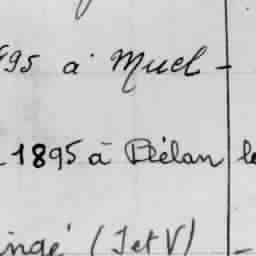 95 à Muel -
1895 à Plélan le
ingé (I et V) -